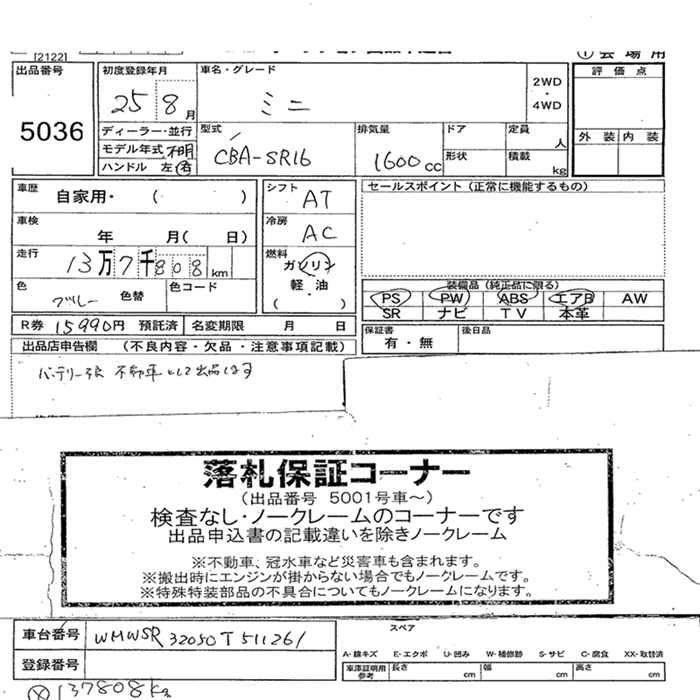 [2122]
① 会場用
出品番号
5036
初度登録年月
25 8月
車名・グレード
ミニ
2WD
・
4WD
評価点
外装 内装
ディーラー・並行
モデル年式 不明
ハンドル 左 右
型式
CBA-SR16
排気量
1600cc
ドア
形状
定員
人
積載
kg
車歴
自家用・( )
車検
年 月( 日)
走行
13万7千808km
色
ブルー
色替
色コード
シフト
AT
冷房
AC
燃料
ガソリン
軽油
・
( )
セールスポイント (正常に機能するもの)
装備品 (純正品に限る)
PS PW ABS エアB AW
SR ナビ TV 本革
R券 15990円 預託済
名変期限 月 日
保証書
有・無
後日品
出品店申告欄 (不良内容・欠品・注意事項記載)
不動車として出品します
落札保証コーナー
(出品番号 5001号車~)
検査なし・ノークレームのコーナーです
出品申込書の記載違いを除きノークレーム
※不動車、冠水車など災害車も含まれます。
※搬出時にエンジンが掛からない場合でもノークレームです。
※特殊特装部品の不具合についてもノークレームになります。
車台番号
WMWSR32050T511261
登録番号
スペア
A-線キズ E-エクボ U-凹み W-補修跡 S-サビ C-腐食 XX-取替済
車庫証明用
参考
長さ cm
幅 cm
高さ cm
137808km